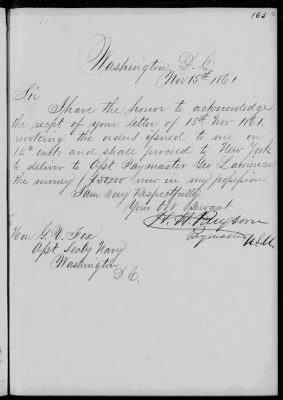 163
Washington D.C
Nov 15th 1861
Sir
I have the honor to acknowledge
the recpt of your letter of 15th Nov 1861.
revoking the orders issued to me on
14th inst. and shall proceed to New York
to deliver to Asst. Paymaster Geo Lawrence
the money, $50,000 now in my possession
I am Very Respectfully
Your Obt Servant
Paymaster U.S.N.
To
Hon G. V. Fox
Asst Secty Navy
Washington
D.C.